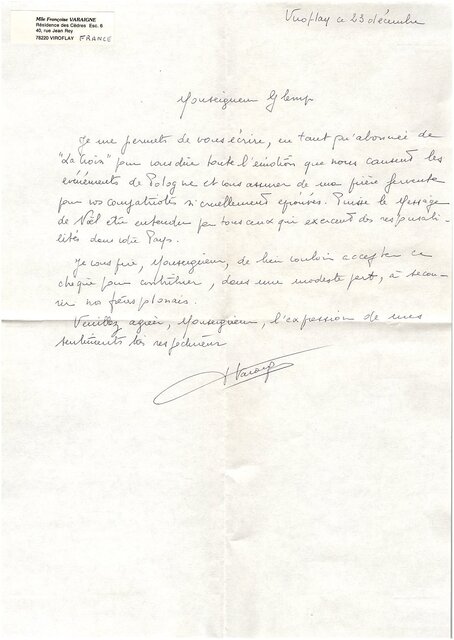 Mlle Françoise VARAIGNE
Résidence des Cèdres Esc. 6
40, rue Jean Rey
78220 VIROFLAY FRANCE
Viroflay ce 23 décembre
Monseigneur Glemp
Je me permets de vous écrire, en tant qu'abonnée de
"La Croix" pour vous dire toute l'émotion que nous causent les
événements de Pologne et vous assurer de ma prière fervente
pour vos compatriotes si cruellement éprouvés. Puisse le Message
de Noël être entendu par tous ceux qui exercent des responsabi-
lités dans votre Pays.
Je vous prie, Monseigneur, de bien vouloir accepter ce
chèque pour contribuer, dans une modeste part, à secou-
rir nos frères polonais.
Veuillez agréer, Monseigneur, l'expression de mes
sentiments très respectueux
FVaraigne